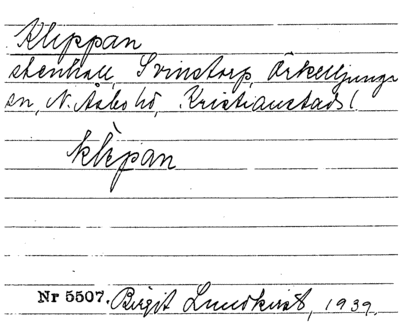 Klippan
stenhall, Svinstorp, Örkelljunga
sn, N. Åsbo hd, Kristianstads l
klipan
Nr 5507. Birgit Lundkvist, 1939.